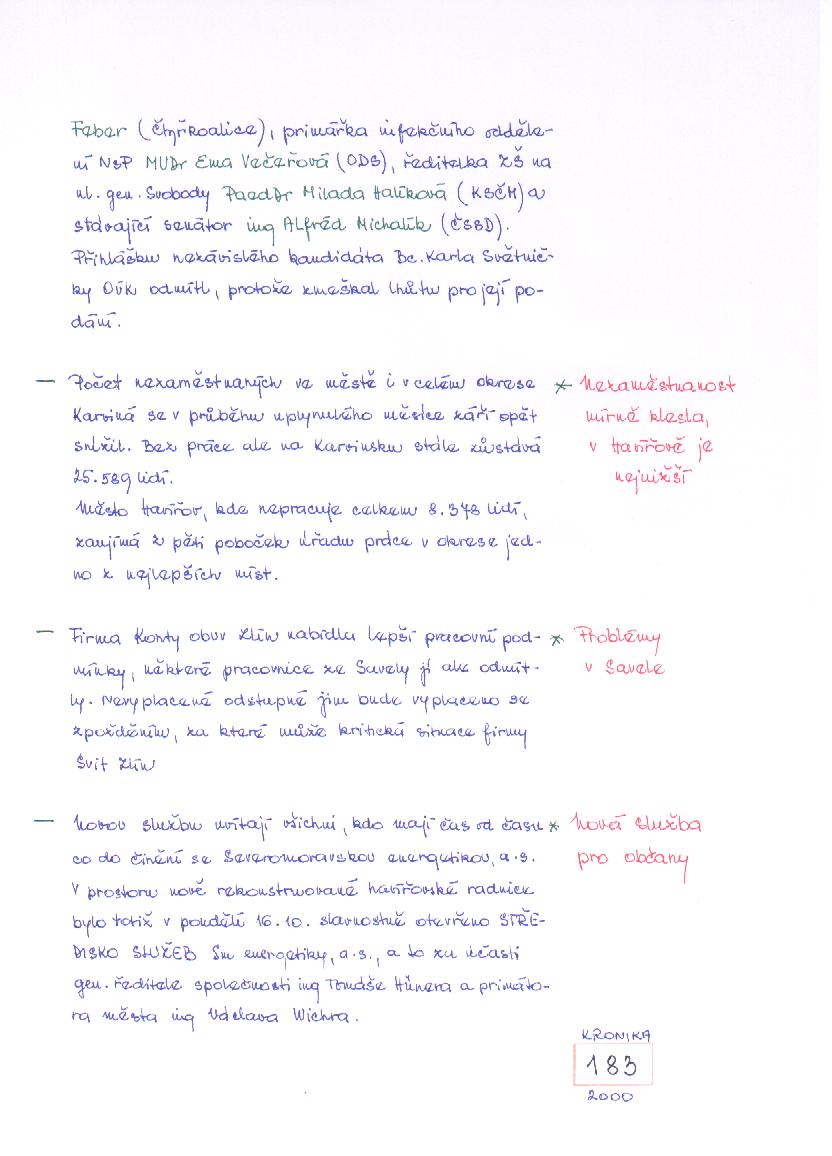 Feber (Čtyřkoalice), primářka infekčního odděle-
ní NsP MUDr Ema Večeřová (ODS), ředitelka ZŠ na
ul. gen. Svobody PaedDr Milada Halíková (KSČM) a
stávající senátor ing Alfréd Michalík (ČSSD).
Přihlášku nezávislého kandidáta Bc. Karla Světnič-
ky OVK odmítl, protože zmeškal lhůtu pro její po-
dání.
— Počet nezaměstnaných ve městě i v celém okrese * Nezaměstnanost
Karviná se v průběhu uplynulého měsíce září opět mírně klesla,
snížil. Bez práce ale na Karvinsku stále zůstává v Havířově je
25.589 lidí. nejnižší
Město Havířov, kde nepracuje celkem 8.378 lidí,
zaujímá z pěti poboček úřadu práce v okrese jed-
no z nejlepších míst.
— Firma Konty obuv Zlín nabídla lepší pracovní pod- * Problémy
mínky, některé pracovnice ze Savely jí ale odmít- v Savele
ly. Nevyplacené odstupné jim bude vyplaceno se
zpožděním, za které může kritická situace firmy
Svit Zlín
— Novou službu uvítají všichni, kdo mají čas od času * Nová služba
co do činění se Severomoravskou energetikou, a.s. pro občany
V prostoru nově rekonstruované havířovské radnice
bylo totiž v pondělí 16.10. slavnostně otevřeno STŘE-
DISKO SLUŽEB Sm energetiky, a.s., a to za účasti
gen. ředitele společnosti ing Tomáše Hünera a primáto-
ra města ing Václava Wichra.
KRONIKA
183
2000